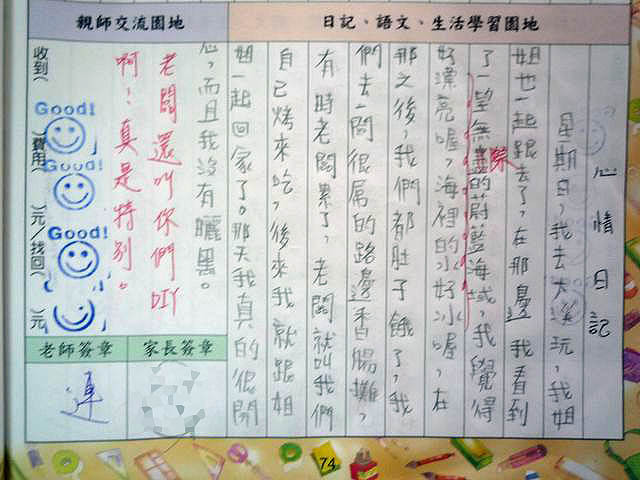 親師交流園地
日記、語文、生活學習園地
心情日記
星期日，我去大溪玩，我姐
姐也一起跟去了，在那邊我看到
了一望無際的蔚藍海域，我覺得
好漂亮喔，海裡的水好冰喔，在
那之後，我們都肚子餓了，我
們去一間很屌的路邊香腸攤，
有時老闆累了，老闆就叫我們
自己烤來吃，後來我就跟姐
姐一起回家了。那天我真的很開
心，而且我沒有曬黑。
老闆還叫你們DIY
啊！真是特別。
收到(
)費用(
)元/找回(
)元
Good!
Good!
Good!
老師簽章
家長簽章
連
74